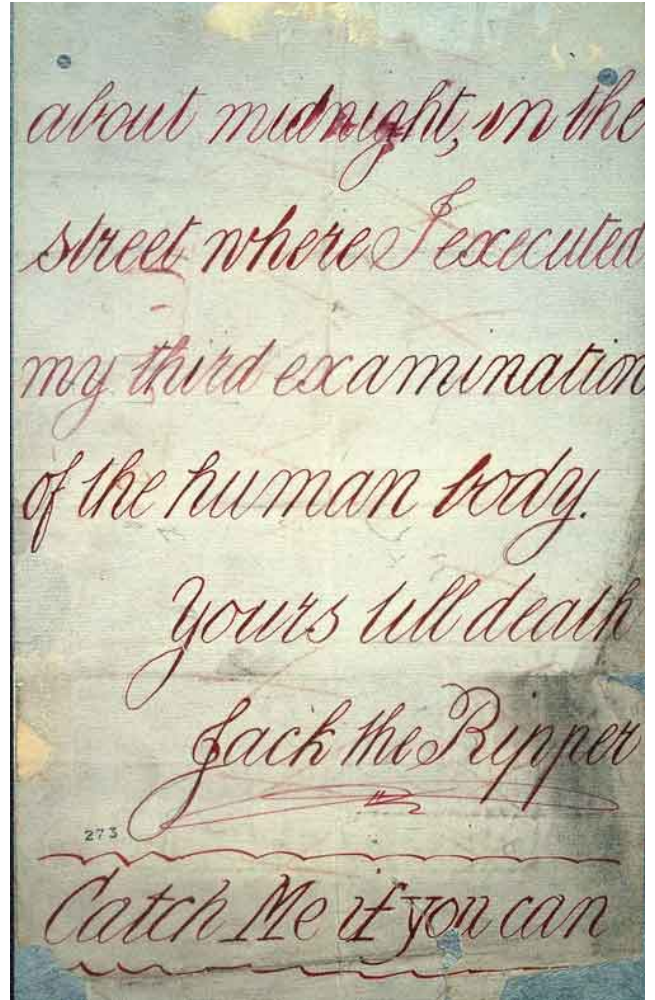 about midnight, in the
street where I executed
my third examination
of the human body.
Yours till death
Jack the Ripper
273
Catch Me if you can